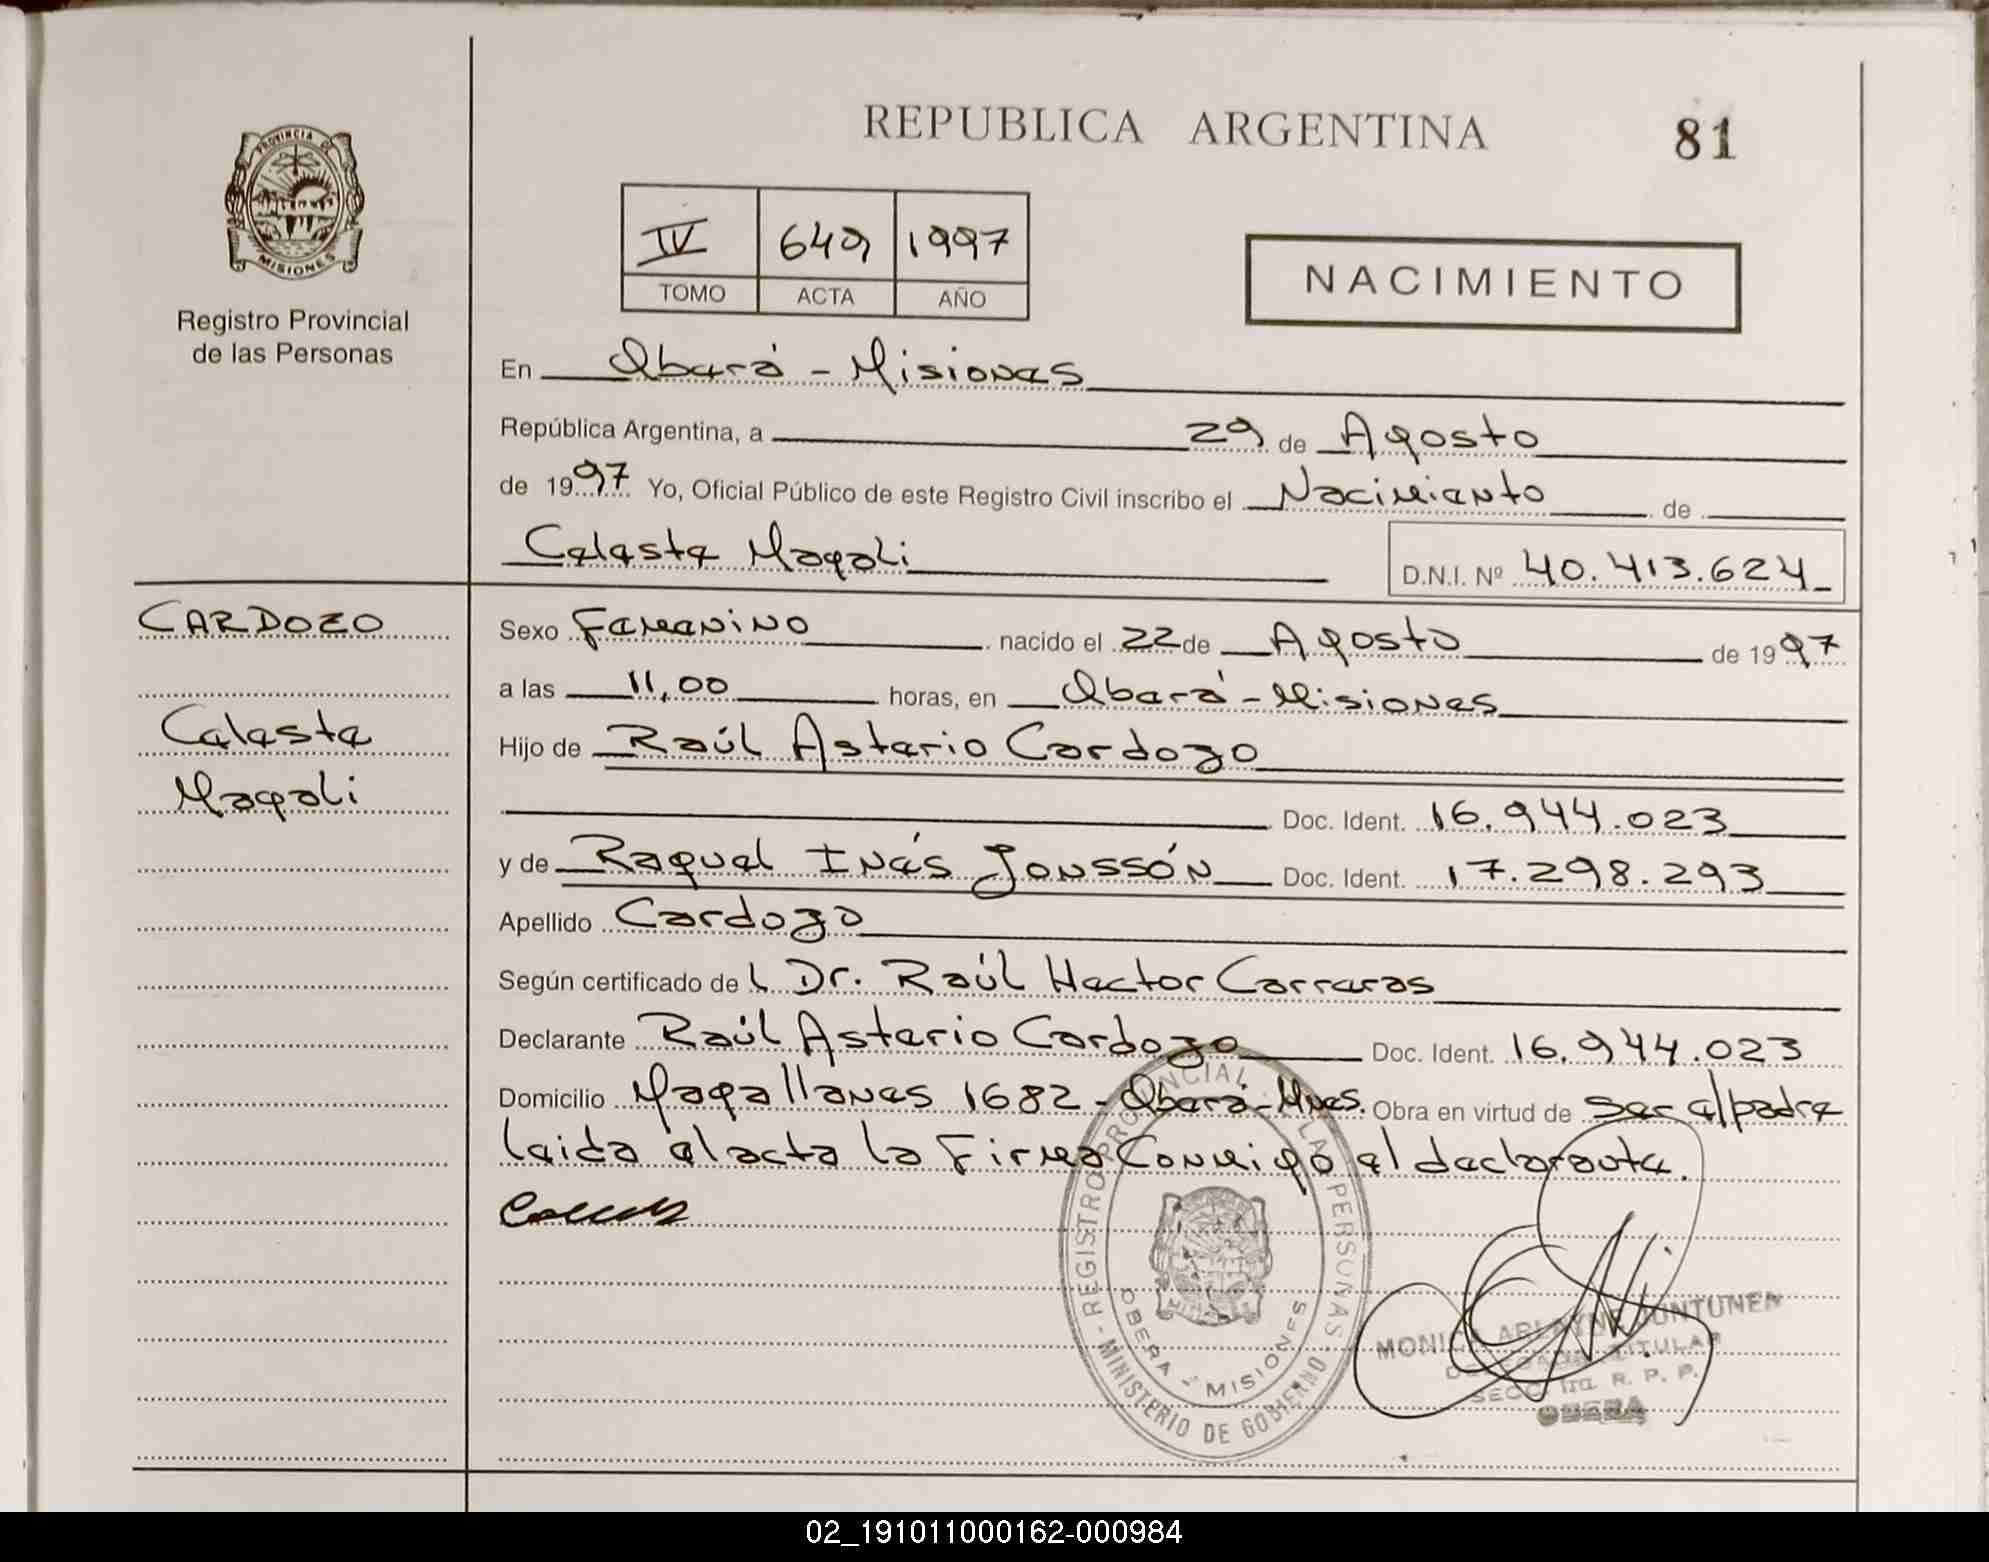 REPUBLICA ARGENTINA
81
PROVINCIA DE
MISIONES
Registro Provincial
de las Personas
IV 649 1997
TOMO ACTA AÑO
NACIMIENTO
En Oberá - Misiones
República Argentina, a 29 de Agosto
de 1997 Yo, Oficial Público de este Registro Civil inscribo el Nacimiento de
Celeste Magali
D.N.I. Nº 40.413.624
CARDOZO
Celeste
Magali
Sexo Femenino nacido el 22 de Agosto de 1997
a las 11,00 horas, en Oberá - Misiones
Hijo de Raúl Asterio Cardozo
Doc. Ident. 16.944.023
y de Raquel Inés Jonssón Doc. Ident. 17.298.293
Apellido Cardozo
Según certificado del Dr. Raúl Hector Carreras
Declarante Raúl Asterio Cardozo Doc. Ident. 16.944.023
Domicilio Magallanes 1682 - Oberá - Mnes. Obra en virtud de ser el padre
leida el acta la firma Conmigo el declarante.
REGISTRO PROVINCIAL DE LAS PERSONAS - MINISTERIO DE GOBIERNO -
OBERA - MISIONES
MONICA JUNTUNEN
TITULAR
SECC. 1ra. R. P. P.
OBERA
02_191011000162-000984